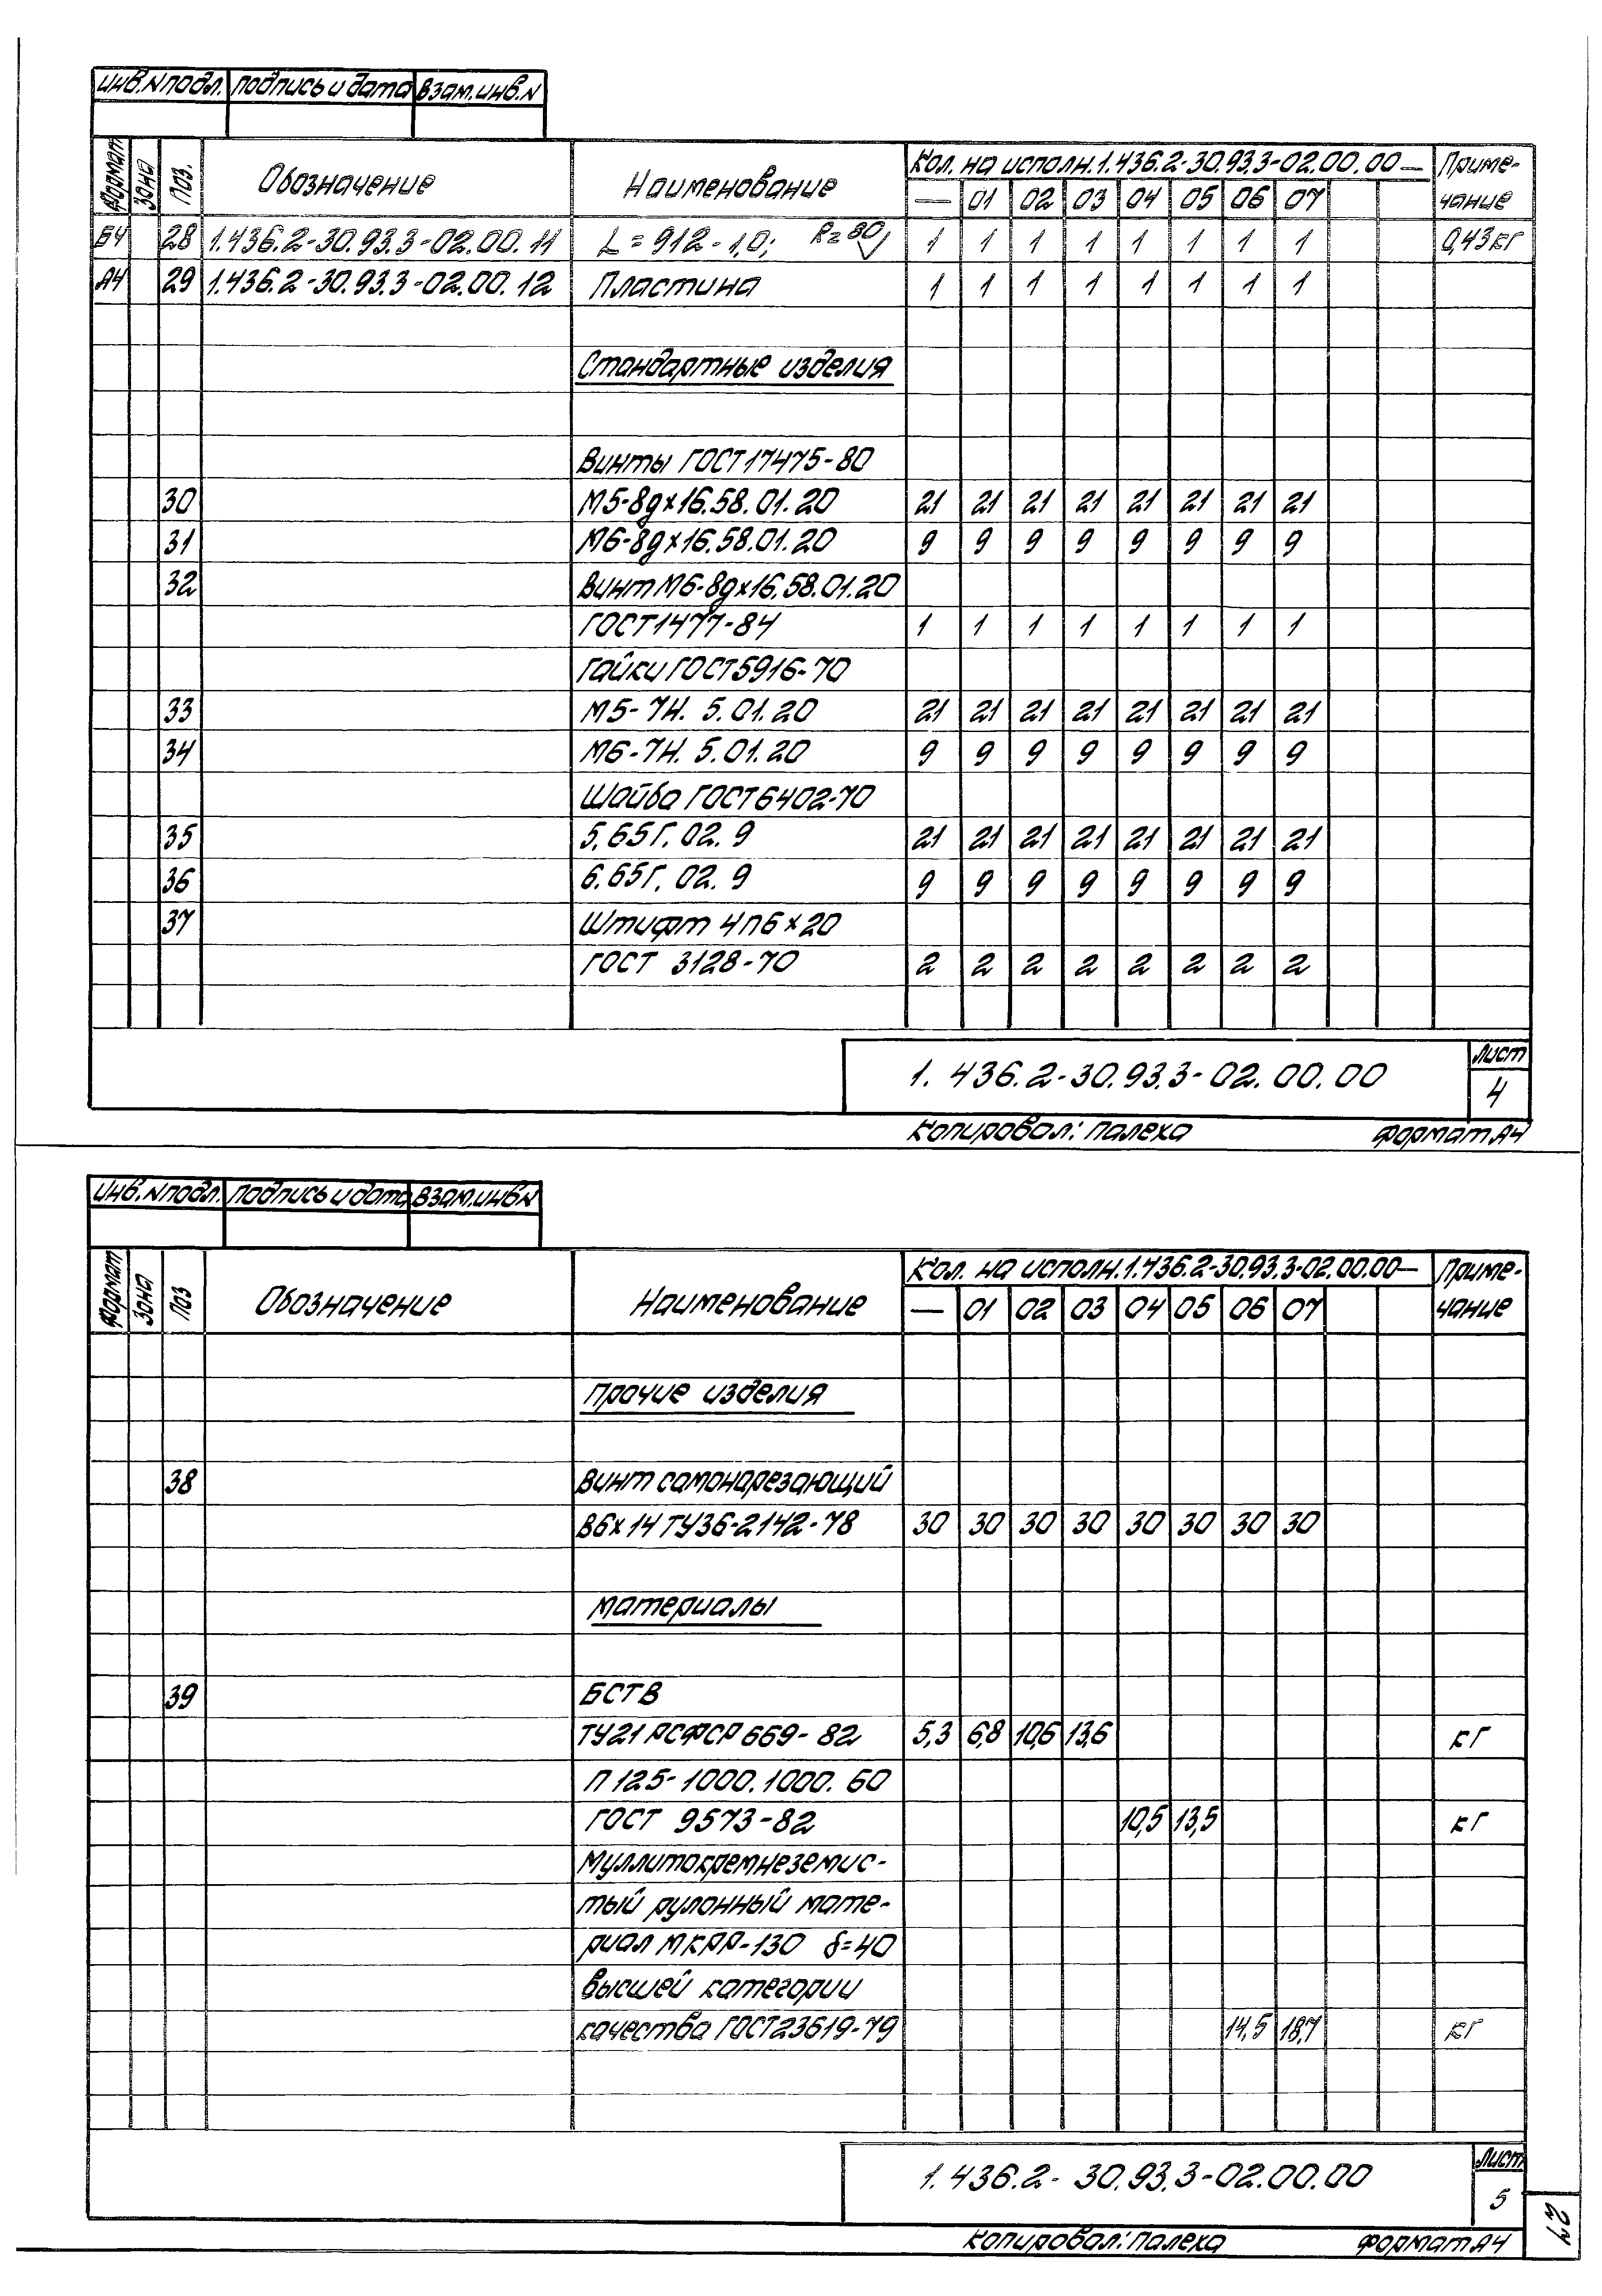 инв.Nподл. подпись и дата взам.инв.N
Формат Зона Поз. Обозначение Наименование Кол. на исполн.1.436.2-30.93.3-02.00.00— Приме-
— 01 02 03 04 05 06 07 чание
Б4 28 1.436.2-30.93.3-02.00.11 L=912-1,0; Rz80 1 1 1 1 1 1 1 1 0,43кг
А4 29 1.436.2-30.93.3-02.00.12 Пластина 1 1 1 1 1 1 1 1
Стандартные изделия
Винты ГОСТ17475-80
30 М5-8gх16.58.01.20 21 21 21 21 21 21 21 21
31 М6-8gх16.58.01.20 9 9 9 9 9 9 9 9
32 Винт М6-8gх16.58.01.20
ГОСТ1477-84 1 1 1 1 1 1 1 1
Гайки ГОСТ5916-70
33 М5-7Н.5.01.20 21 21 21 21 21 21 21 21
34 М6-7Н.5.01.20 9 9 9 9 9 9 9 9
Шайба ГОСТ6402-70
35 5.65Г.02.9 21 21 21 21 21 21 21 21
36 6.65Г.02.9 9 9 9 9 9 9 9 9
37 Штифт 4п6х20
ГОСТ 3128-70 2 2 2 2 2 2 2 2
1.436.2-30.93.3-02.00.00 Лист
4
Копировал: Палеха Формат А4
инв.Nподл. подпись и дата взам.инв.N
Формат Зона Поз Обозначение Наименование Кол. на исполн.1.436.2-30.93.3-02.00.00— Приме-
— 01 02 03 04 05 06 07 чание
Прочие изделия
38 Винт самонарезающий
В6х14 ТУ36-2142-78 30 30 30 30 30 30 30 30
Материалы
39 БСТВ
ТУ21 РСФСР 669-82 5,3 6,8 10,6 13,6 кг
П 125-1000.1000.60
ГОСТ 9573-82 10,5 13,5 кг
Муллитокремнеземис-
тый рулонный мате-
риал МКРР-130 δ=40
высшей категории
качества ГОСТ23619-79 14,5 18,7 кг
1.436.2-30.93.3-02.00.00 Лист
5
Копировал: Палеха Формат А4
21